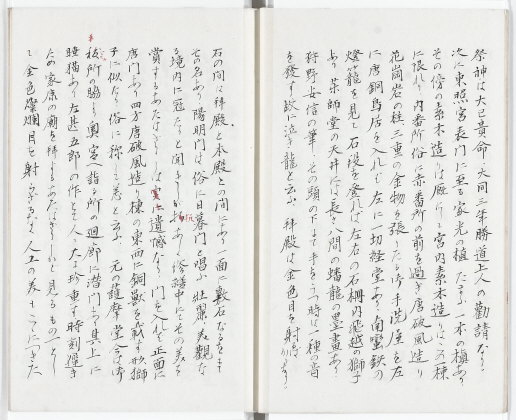 祭神は大己貴命、大同三年勝道上人の勧請なり
次に東照宮表門に至る家光の植たまふ一本の槇あり
その傍の素木造りは厩なり宮内素木造りはこの一棟
に限れり内番所俗に赤番所の前を過ぎ唐破風造り
花崗岩の柱三重の金物を張りたる御手洗屋を左
に唐銅鳥居を入れば左に一切経堂あり南蛮鉄の
燈籠を見て石段を登れば左右の石柵内飛越の獅子
あり薬師堂の天井には長さ八間の蟠龍の墨画あり
狩野安信の筆、その頭の下にて手をうつ時は一種の音
を発す故に泣き龍と云ふ 拝殿は金色目を射
石の間は拝殿と本殿との間にあり一面に敷石なるをもて
この名あり陽明門は俗に日暮門と唱ふ壮麗美観な
る境内に冠たりと聞きしが修繕中にその美を
賞するあたはざりしは遺憾なり 門を入れば正面に
唐門あり四方唐破風造り棟の東西に銅獣を載す形獅
子に似たり俗に称して恙と云ふ 元の護摩堂今は
祓所の脇より奥宮へ詣る所の廻廊に潜門あり其上に
睡猫あり左甚五郎の作とて人々大に珍重す時刻過ぎ
ため家康の廟を拝するあたはず見るもの一として
金色燦爛目を射 人工の美